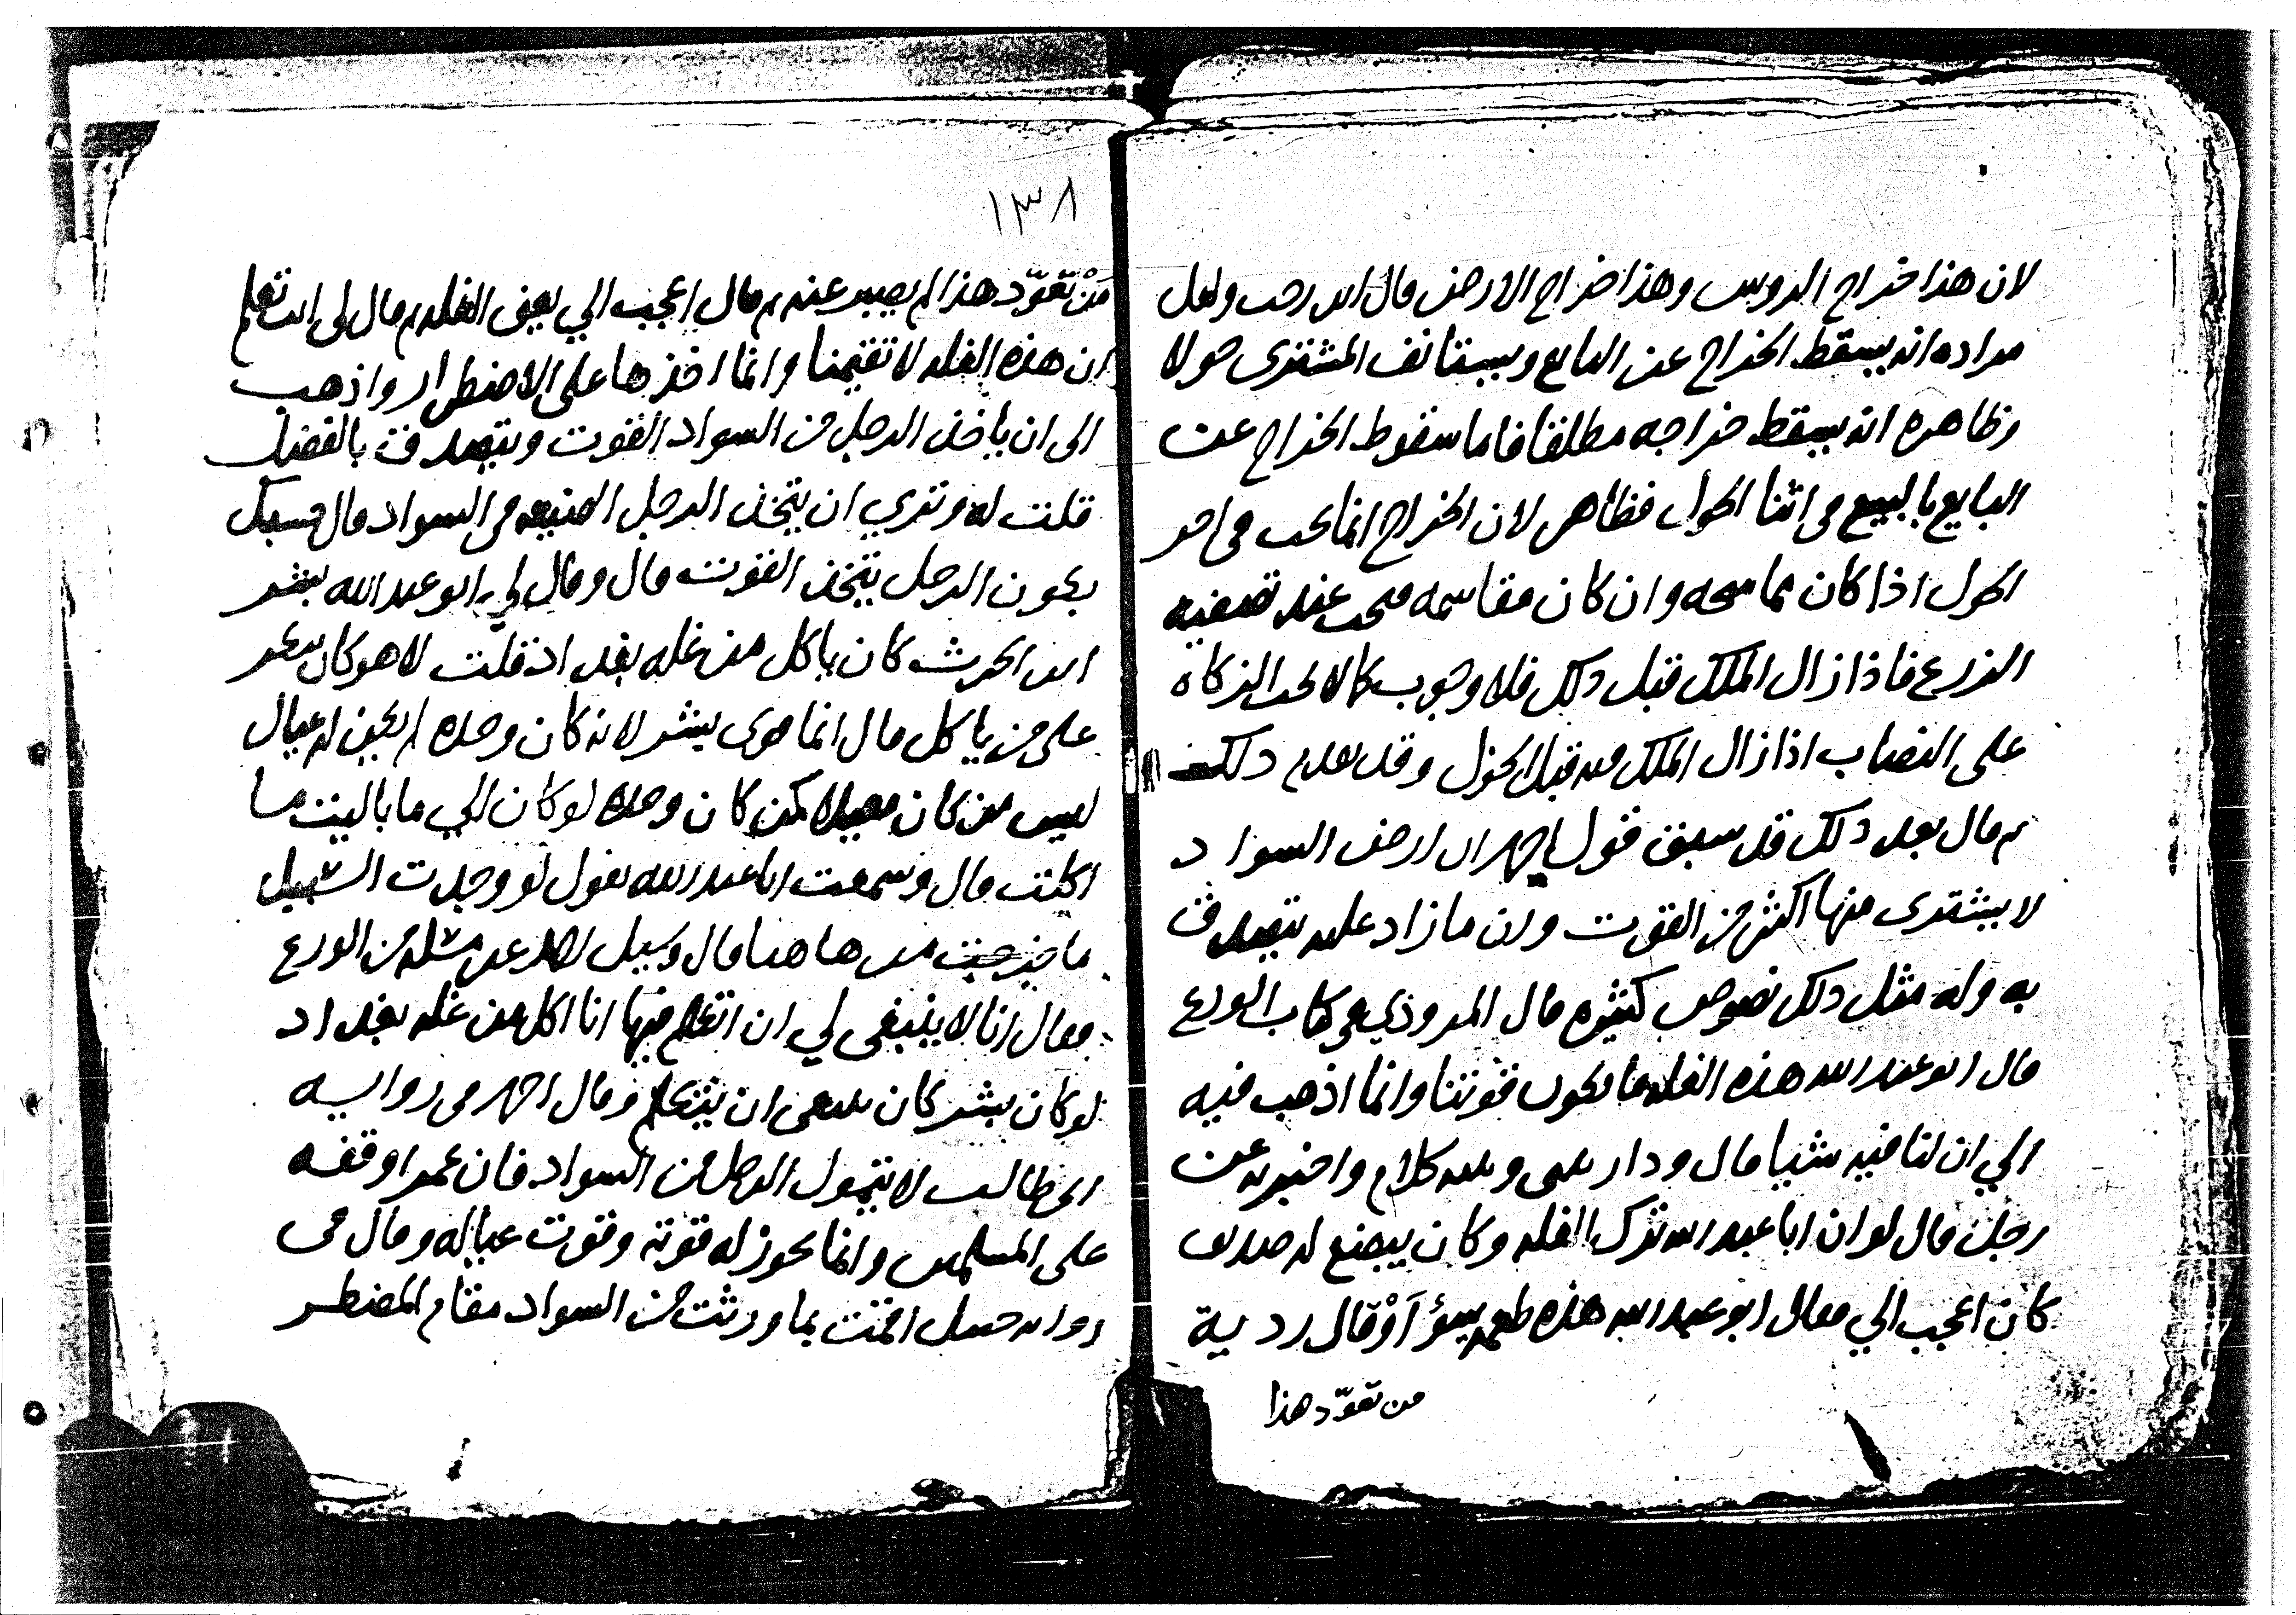 لان هذا خراج الروس وهذا خراج الارض قال ابن رجب ولعل
مراده انه يسقط الخراج عن البايع ويستانف المشترى حولا
وظاهره انه يسقط خراجه مطلقا فاما سقوط الخراج عن
البايع بالبيع فى اثنا الحول فظاهر لان الخراج انما يجب فى اخر
الحول اذا كان مما سحه وان كان مقاسمه فيجب عند تصفيه
الزرع فاذا زال الملك قبل ذلك فلا وجوب كما لا تجب الزكاه
على النصاب اذا زال الملك فيه قبل الحول وقد تقدم ذلك
ثم قال بعد ذلك قد سبق قول احمد ان ارض السواد
لا يشترى منها اكثر من القوت وان ما زاد عليه يتصدق
به وله مثل ذلك نصوص كثيره قال المروذي فى كتاب الورع
قال ابو عبد الله هذه الغله ما يكون قوتنا وانما اذهب فيه
الي ان لنا فيه شيا قال ودار بينى وبينه كلام واخبرته عن
رجل قال لو ان ابا عبد الله ترك الغله وكان يبضع له صديق
كان اعجب الي فقال ابو عبد الله هذه طعمه سؤ اَوْ قال رديه
من تعوّد هذا
١٣٨
مَنْ تعوّد هذا لم يصبر عنه ثم قال اعجب الي يعني الغله ثم قال لى انت تعلم
ان هذه الغله لا تقيمنا وانما اخذها على الاضطرار واذهب
الى ان ياخذ الرجل من السواد القوت ويتصدق بالفضل
قلت له وتري ان يتخذ الرجل الضيعه فى السواد قال
يكون الرجل يتخذ القوت قال وقال لي ابو عبد الله بشر
ابن الحرث كان ياكل من غله بغداد قلت لا هو كان ينكر
على من ياكل قال انما قوى بشر لانه كان وحده لم يكن له عيال
ليس من كان معيلا كمن كان وحده لو كان الي ما باليت ما
اكلت قال وسمعت ابا عبد الله يقول لو وجدت السبيل
ما خرجت من هاهنا قال وسيل احمد عن مسله من الورع
فقال انا لا ينبغى لي ان اتكلم فيها انا اكل من غله بغداد
لو كان بشر كان ينبغى ان يتكلم وقال احمد فى روايه
ابى طالب لا يتمول الرجل من السواد فان عمر اوقفه
على المسلمين وانما يجوز له قوته وقوت عياله وقال فى
روايه حنبل اقمت بما ورثت من السواد مقام المضطر